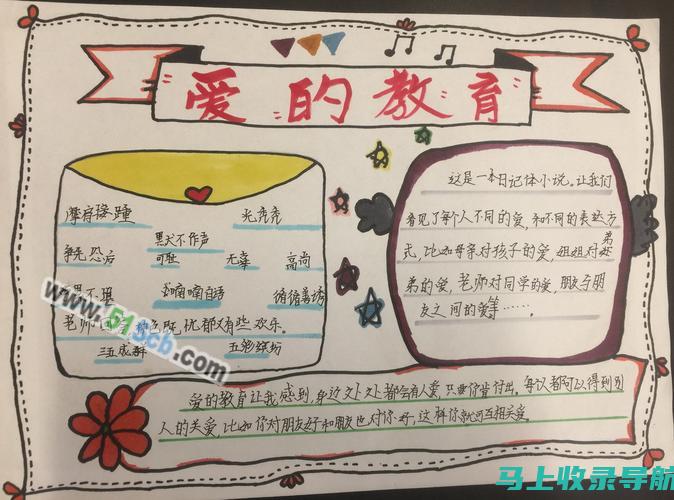 爱的教育
摩肩接踵 光秃秃
黑犬不作声
争先恐后 可耻 无辜 高尚
喃喃自语 循循善诱
老师 既忧郁又有些欢乐。
三五成群 五彩缤纷
这是一本日记体小说。让我们
看见了每个人不同的爱,和不同的表达方
式,比如母亲对孩子的爱,姐姐对弟
弟的爱,老师对同学的爱,朋友与朋
友之间的爱等……。
爱的教育让我感到,身边处处都会有人爱,只要你肯付出。每次都可以得到别
人的关爱,比如你对朋友好和朋友也对你好,这样你就可互相关爱。
www.51scb.com
马上收录导航